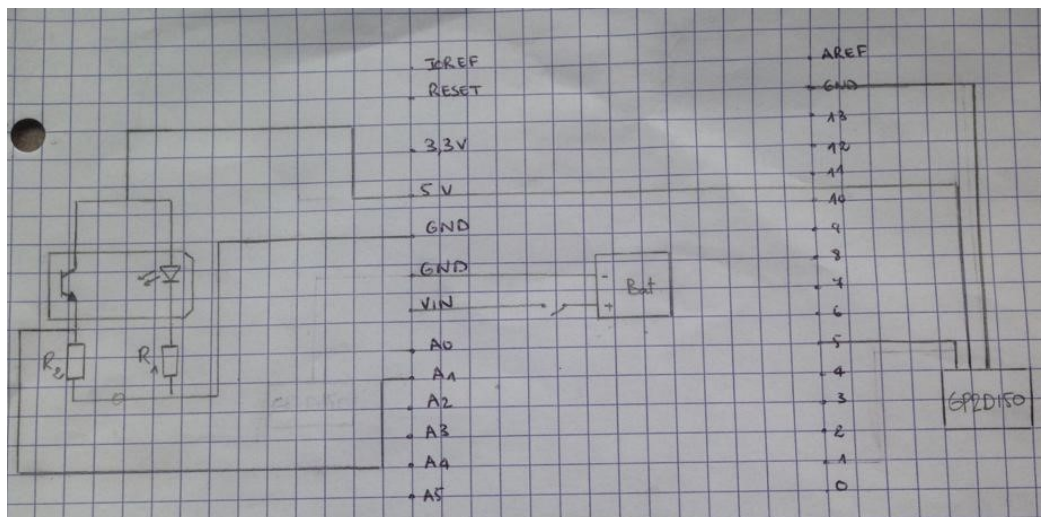 IOREF
RESET
3,3V
5V
GND
GND
VIN
A0
A1
A2
A3
A4
A5
R2
R1
-
Bat
+
AREF
GND
13
12
11
10
9
8
7
6
5
4
3
2
1
0
GP2D150